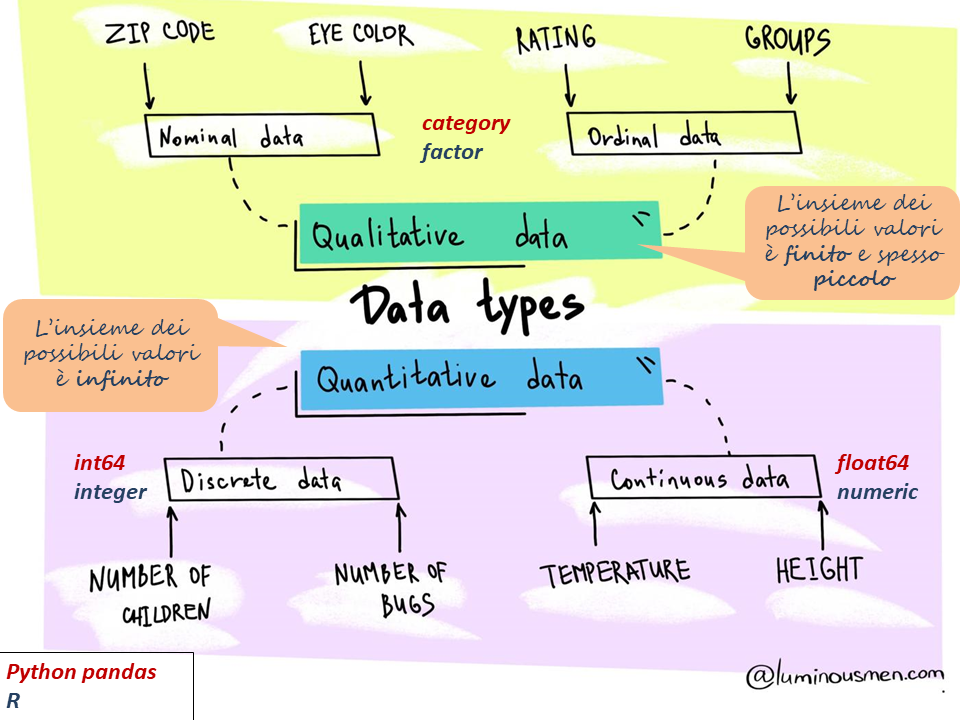 ZIP CODE
EYE COLOR
RATING
GROUPS
Nominal data
category
factor
Ordinal data
Qualitative data
L'insieme dei
possibili valori
è finito e spesso
piccolo
Data types
L'insieme dei
possibili valori
è infinito
Quantitative data
int64
integer
Discrete data
Continuous data
float64
numeric
NUMBER OF
CHILDREN
NUMBER OF
BUGS
TEMPERATURE
HEIGHT
Python pandas
R
@luminousmen.com